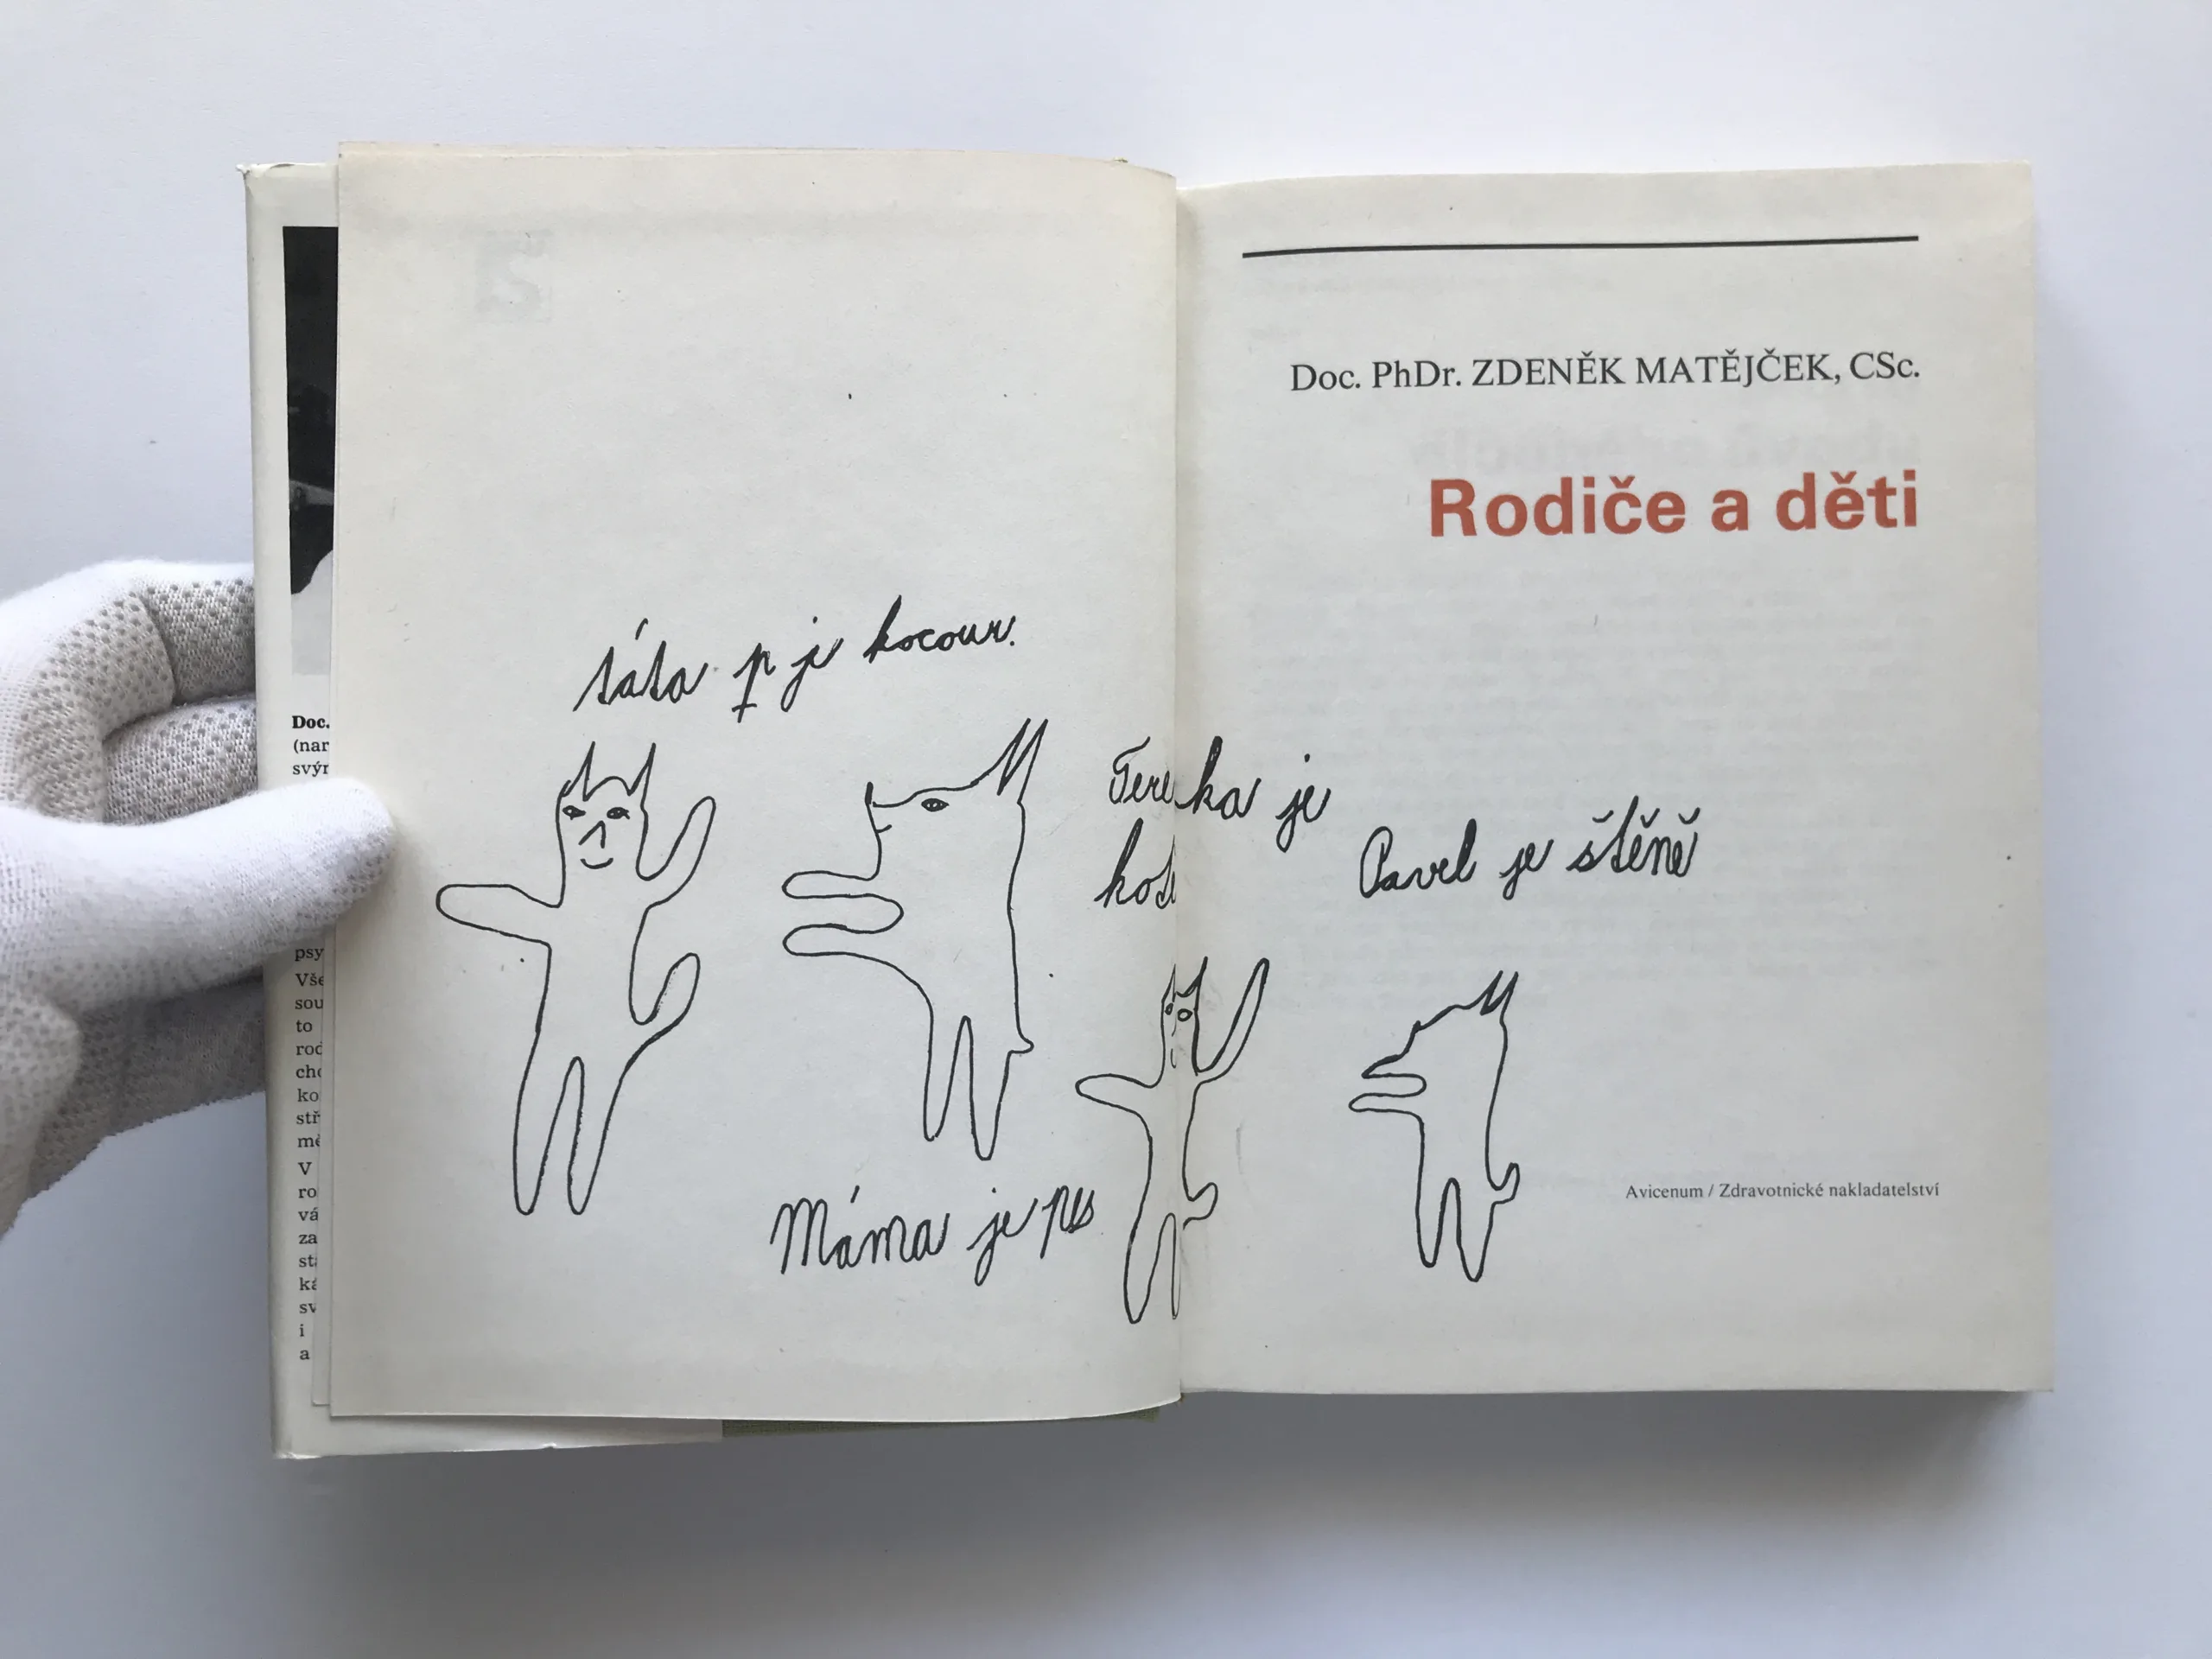 Doc.
(nar
svýr
psy
Vše
sou
to
rod
cho
ko
stř
mě
V
ro
vá
za
sta
ká
sv
i
a
táta p je kocour.
Máma je pes
Terezka je
Pavel je štěně
Doc. PhDr. ZDENĚK MATĚJČEK, CSc.
Rodiče a děti
Avicenum / Zdravotnické nakladatelství